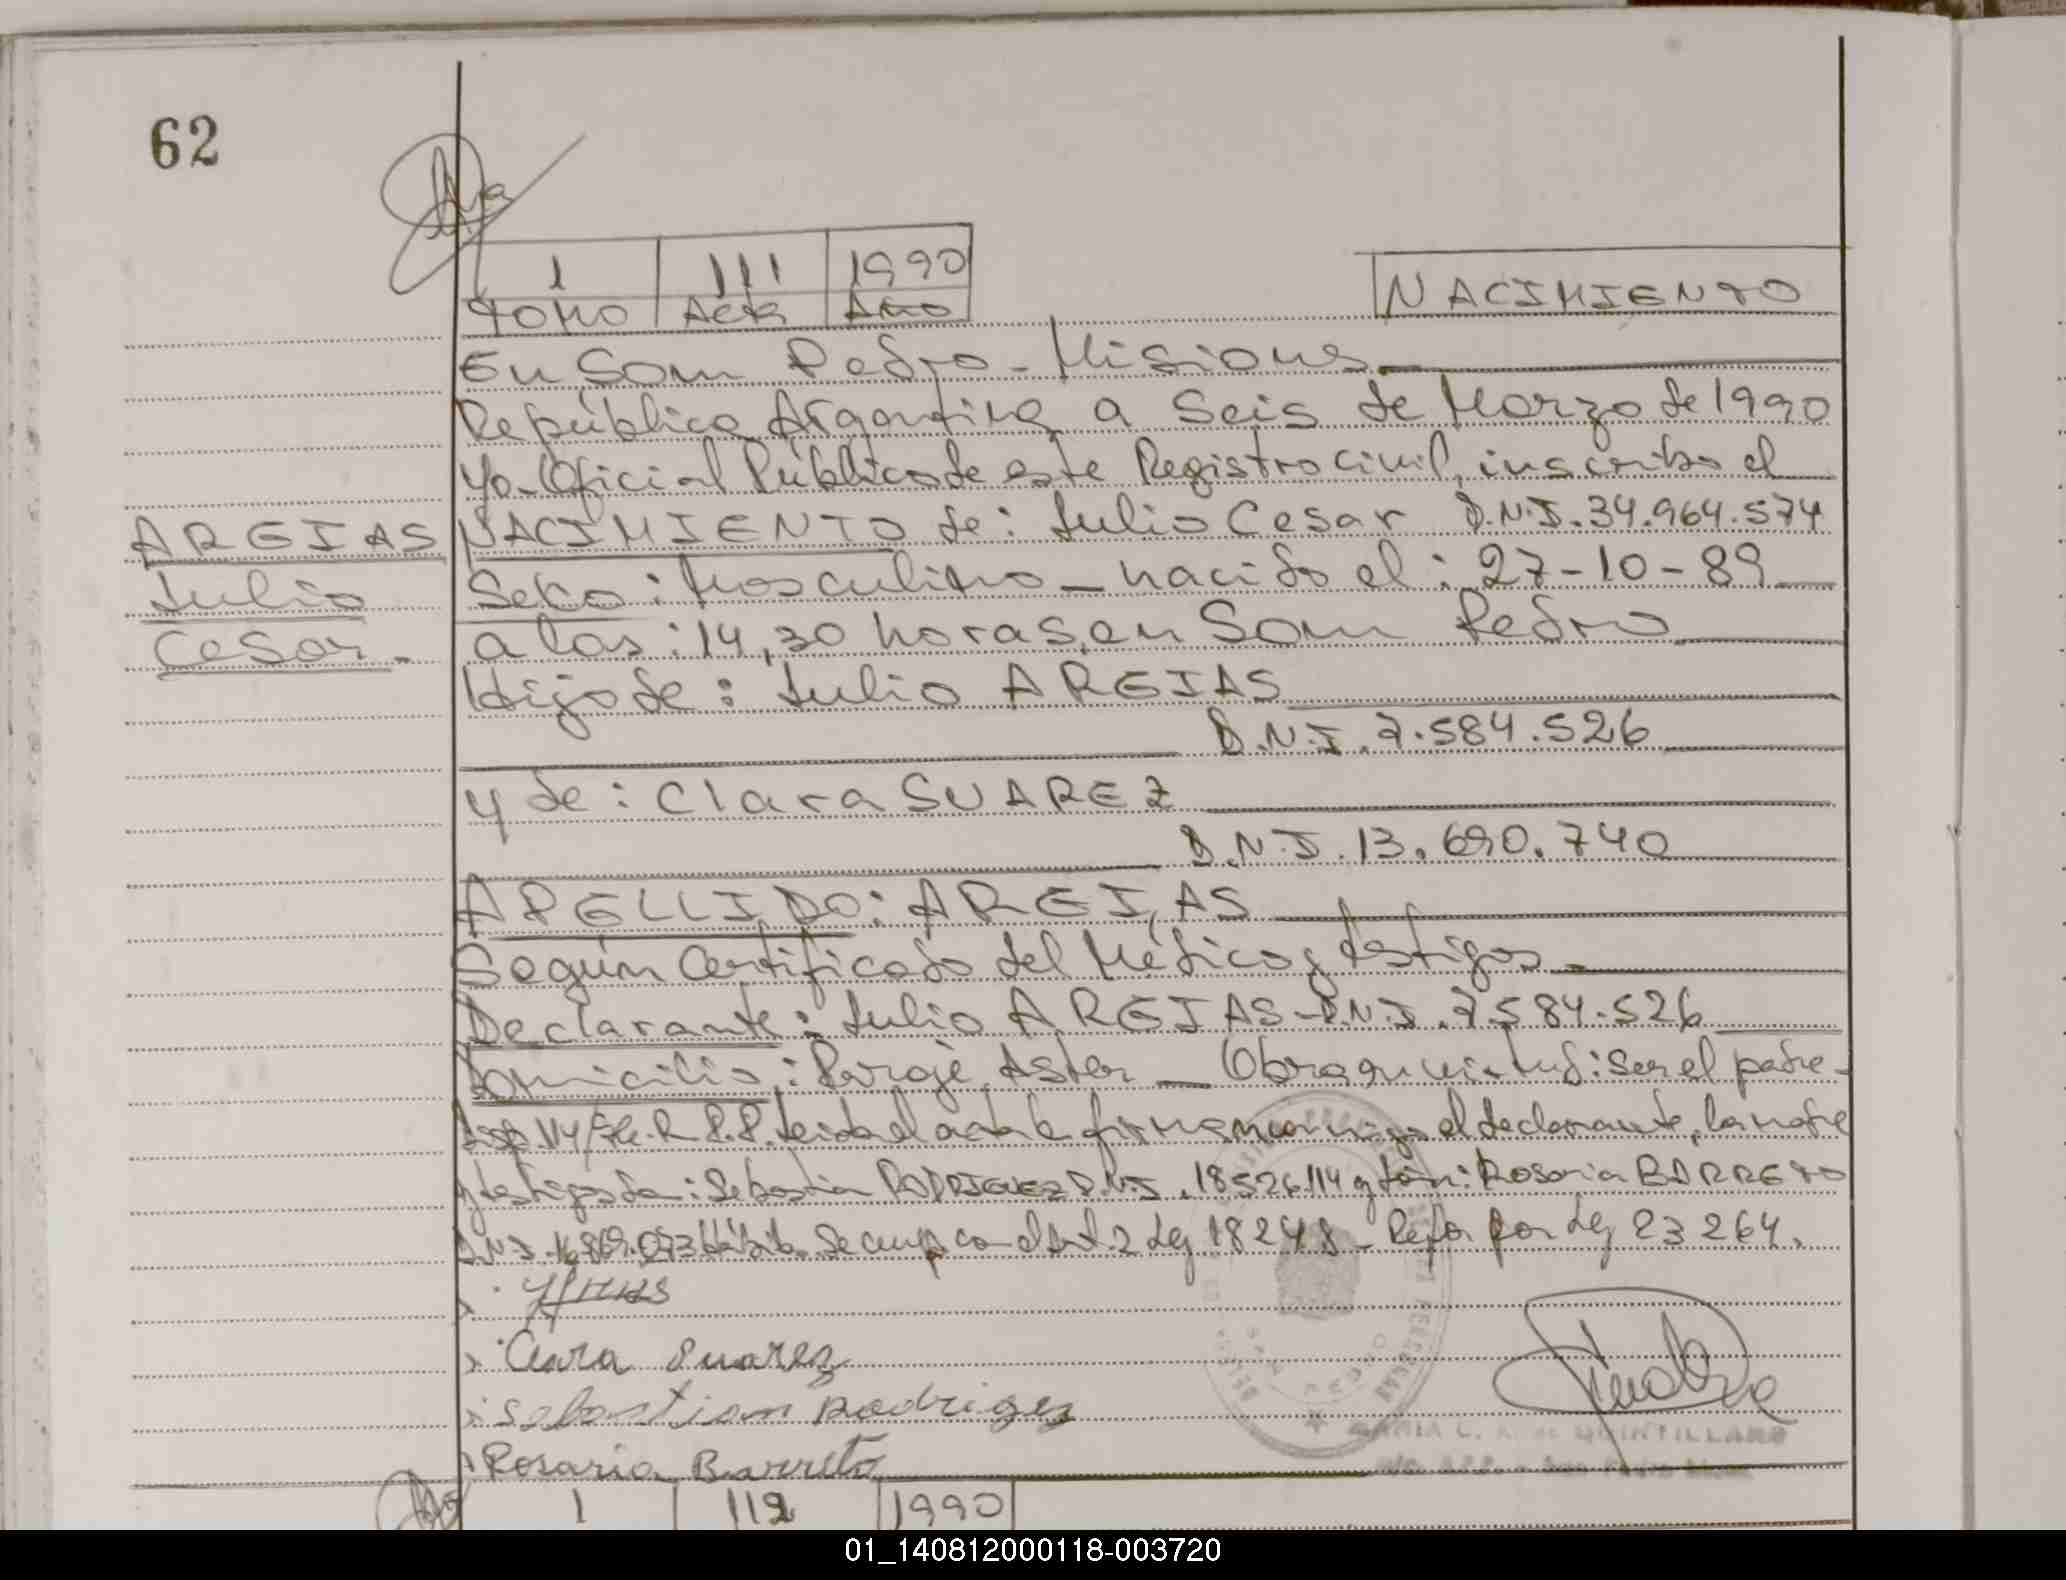 62
1 111 1990
TOMO Acta Año
NACIMIENTO
En San Pedro - Misiones
República Argentina a Seis de Marzo de 1990
Yo Oficial Público de este Registro Civil, inscribo el
NACIMIENTO de: Julio Cesar D.N.I. 34.964.574
ARGIAS
Julio
Cesar.
Sexo: Masculino - nacido el: 27-10-89
a las: 14,30 horas, en San Pedro
Hijo de: Julio ARGIAS
D.N.I. 7.584.526
y de: Clara SUAREZ
D.N.I. 13.690.740
APELLIDO: ARGIAS
Según Certificado del Médico y testigos
Declarante: Julio ARGIAS - D.N.I. 7.584.526
Domicilio: Paraje Aster - Obra en virtud: Ser el padre -
114 R.P.P. Leida el acta la firman conmigo el declarante, la madre
y testigos Don: Sebastian RODRIGUEZ D.N.I. 18526114 y Doña: Rosaria BARRETO
D.N.I. 16.869.073 Se cump con el Art. 2 Ley 18248 - Refor por Ley 23264.
Clara Suarez
Sebastian Rodriguez
Rosaria Barreto
MARIA L. QUINTILLANO
1 112 1990
01_140812000118-003720